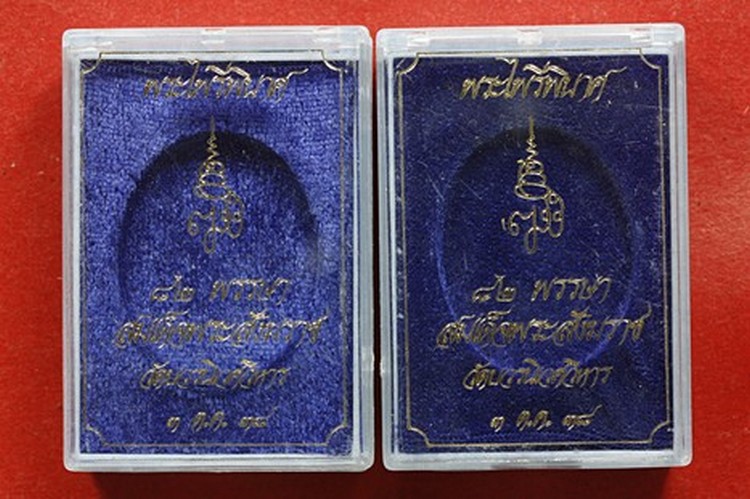 พระไพรีพินาศ
๘๒ พรรษา
สมเด็จพระสังฆราช
วัดบวรนิเวศวิหาร
๓ ต.ค. ๓๘
พระไพรีพินาศ
๘๒ พรรษา
สมเด็จพระสังฆราช
วัดบวรนิเวศวิหาร
๓ ต.ค. ๓๘